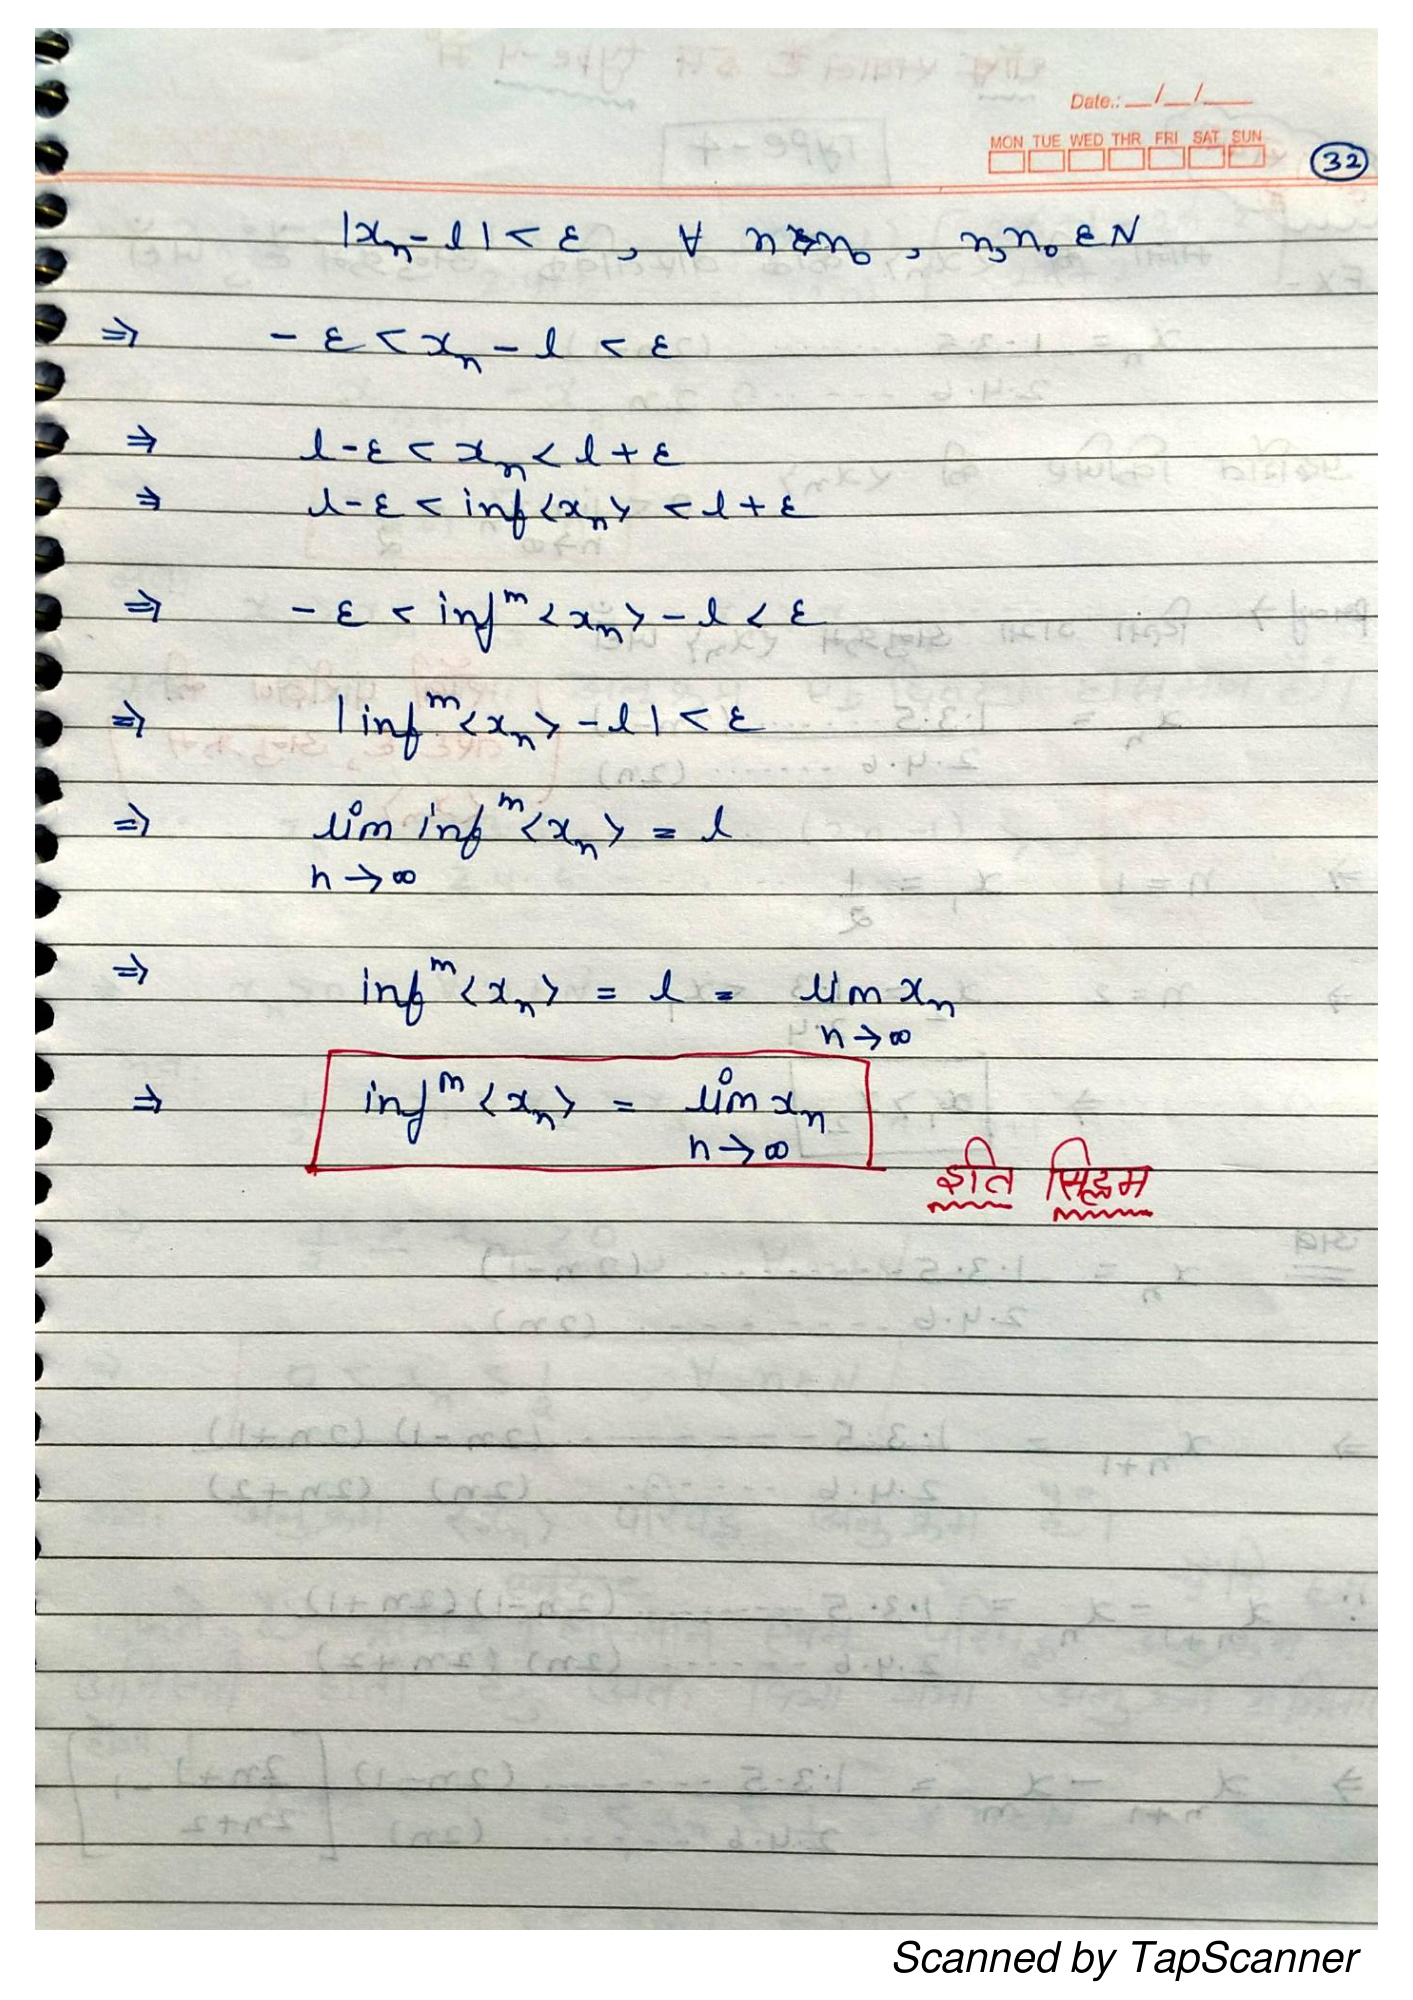 Date.: __/__/____
MON TUE WED THR FRI SAT SUN
32
|xₙ - l| < ε, ∀ n ≥ n₀, n, n₀ ∈ N
⇒ - ε < xₙ - l < ε
⇒ l - ε < xₙ < l + ε
⇒ l - ε < inf <xₙ> < l + ε
⇒ - ε < infᵐ <xₙ> - l < ε
⇒ | infᵐ <xₙ> - l | < ε
⇒ lim infᵐ <xₙ> = l
n → ∞
⇒ infᵐ <xₙ> = l = lim xₙ
n → ∞
⇒ infᵐ <xₙ> = lim xₙ
n → ∞
इति सिद्धम
Scanned by TapScanner